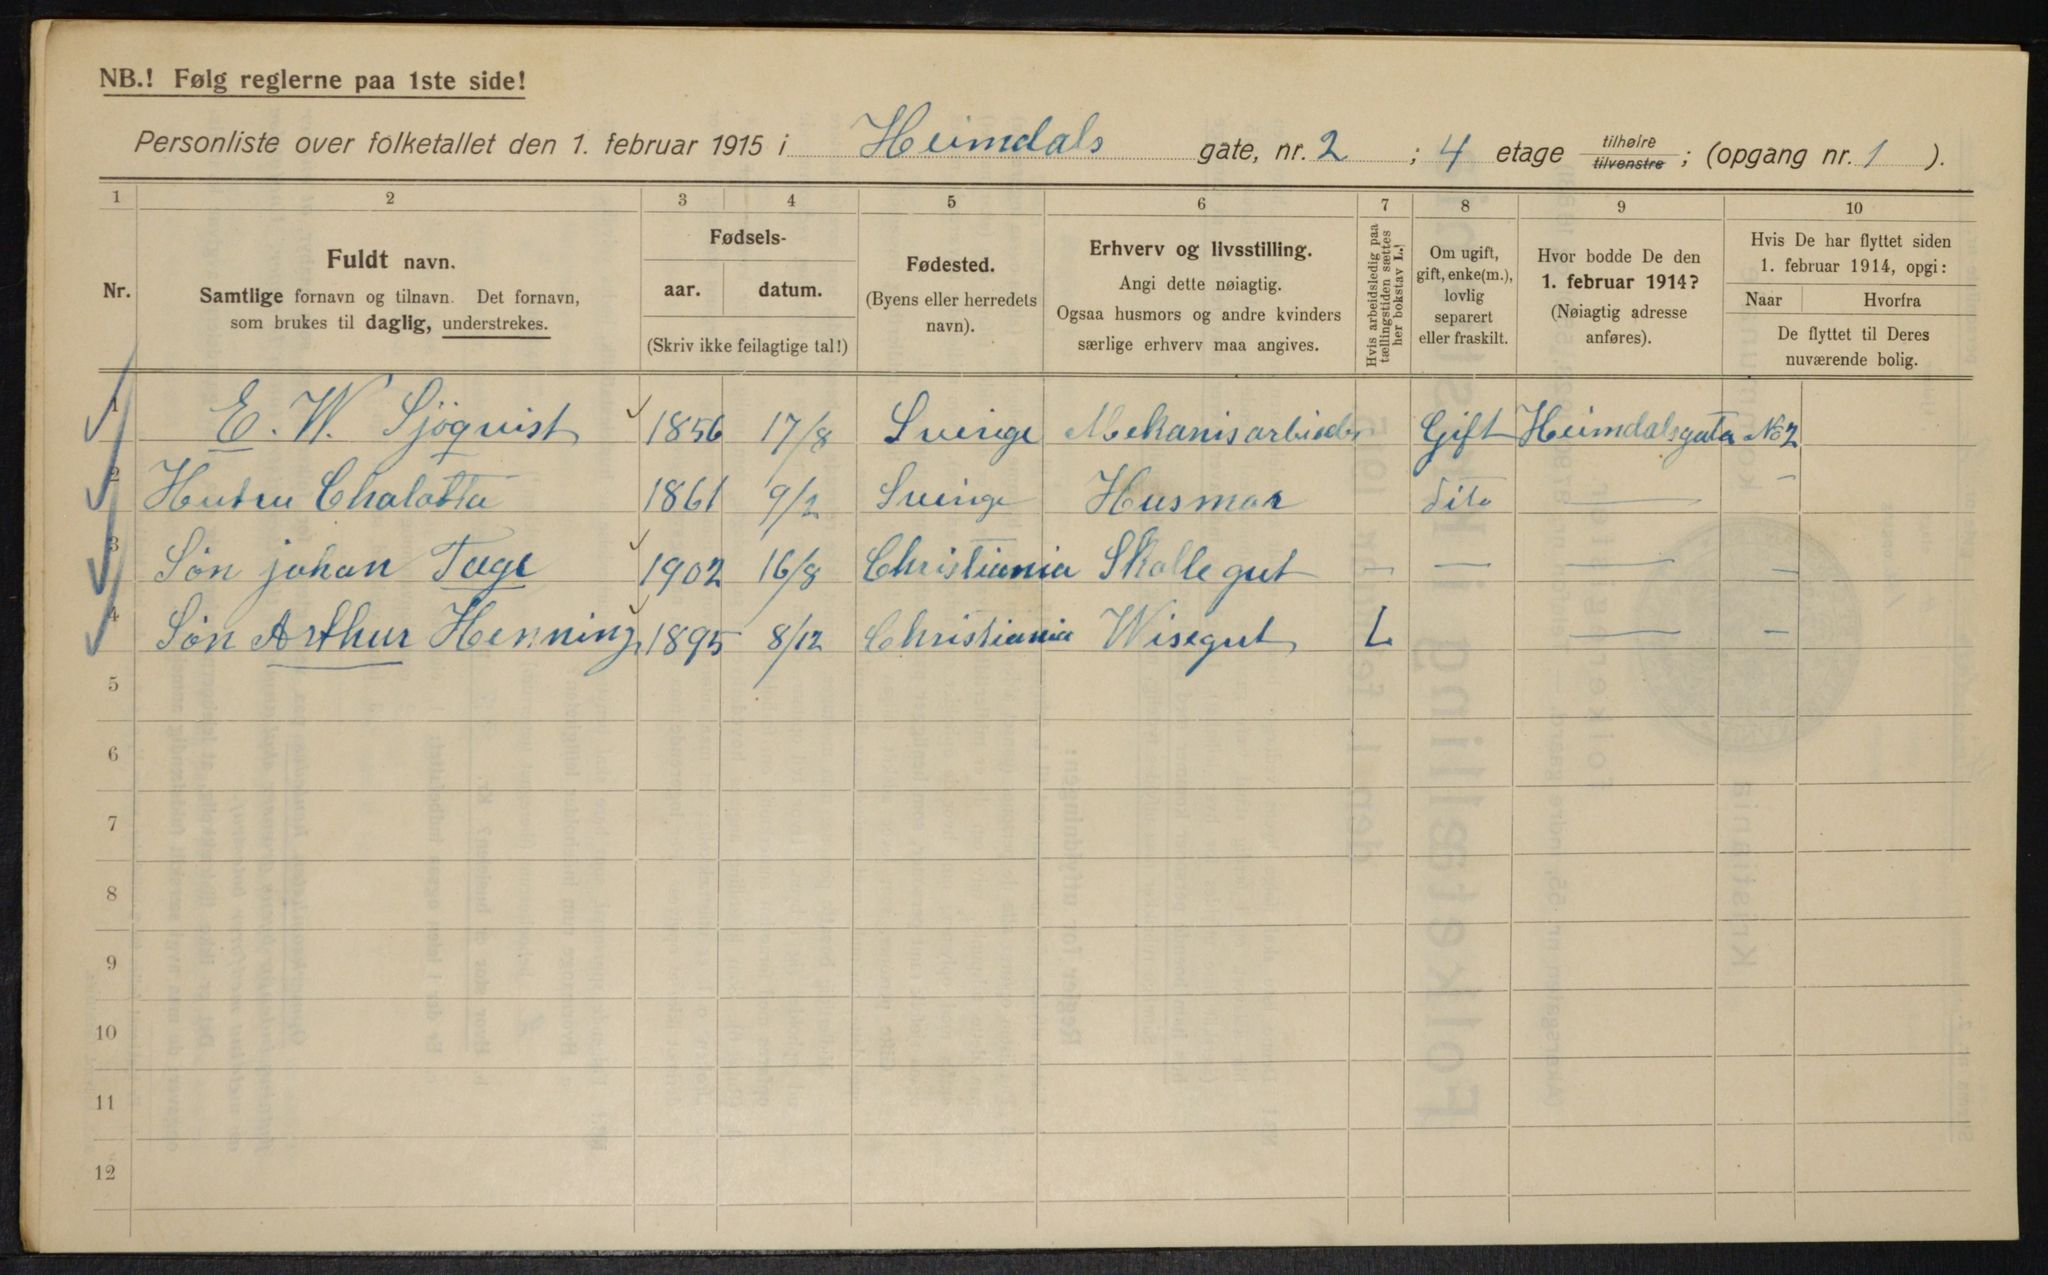 NB.! Følg reglerne paa 1ste side!
Personliste over folketallet den 1. februar 1915 i Heimdals gate, nr. 2 ; 4 etage tilhøire tilvenstre ; (opgang nr. 1 ).
1 2 3 4 5 6 7 8 9 10
Nr.
Fuldt navn.
Samtlige fornavn og tilnavn. Det fornavn,
som brukes til daglig, understrekes.
Fødsels-
aar. datum.
(Skriv ikke feilagtige tal!)
Fødested.
(Byens eller herredets
navn).
Erhverv og livsstilling.
Angi dette nøiagtig.
Ogsaa husmors og andre kvinders
særlige erhverv maa angives.
Hvis arbeidsledig paa
tællingstiden sættes
her bokstav L.
Om ugift,
gift, enke(m.),
lovlig
separert
eller fraskilt.
Hvor bodde De den
1. februar 1914?
(Nøiagtig adresse
anføres).
Hvis De har flyttet siden
1. februar 1914, opgi:
Naar Hvorfra
De flyttet til Deres
nuværende bolig.
1 E. W. Sjöqvist 1856 17/8 Sverige Mekanisarbieder Gift Heimdalsgata No 2
2 Hutru Chalotta 1861 9/2 Sverige Husmor dito — –
3 Sön johan Tage 1902 16/8 Christiania Skollegut – — — –
4 Sön Arthur Henning 1895 8/12 Christiania Wisegut L — –
5
6
7
8
9
10
11
12